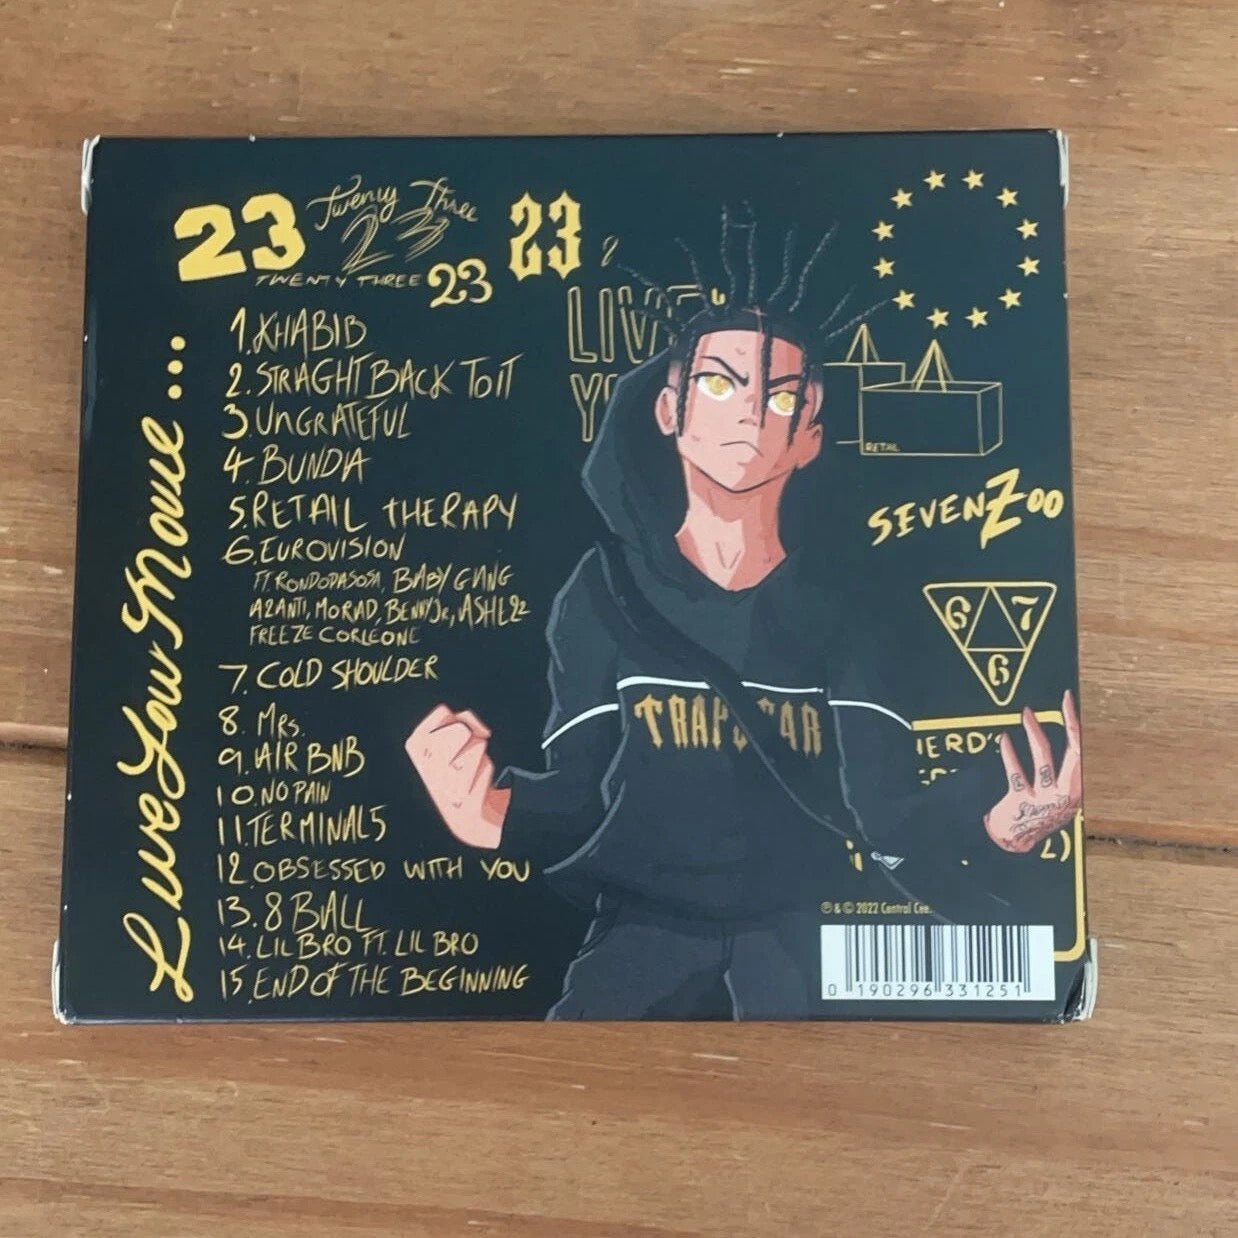 23
Twenty Three
23
TWENTY THREE
23
23
LIVE
Live Your Movie...
1. KHABIB
2. STRAGHT BACK TO IT
3. UNGRATEFUL
4. BUNDA
5. RETAIL THERAPY
6. EUROVISION
FT. RONDODASOSA, BABY GANG
A2ANTI, MORAD, BENNY JR, ASHE 22
FREEZE CORLEONE
7. COLD SHOULDER
8. MRS.
9. AIR BNB
10. NO PAIN
11. TERMINAL 5
12. OBSESSED WITH YOU
13. 8 BALL
14. LIL BRO FT. LIL BRO
15. END OF THE BEGINNING
RETAIL
SEVENZOO
6 7
6
TRAPSTAR
HERD'S
℗ & © 2022 Central Cee.
0 190296 331251